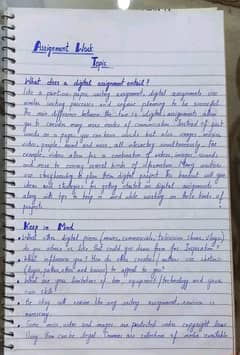 Assignment Work
Topic
What does a digital assignment entail?
Like a print-on-paper writing assignment, digital assignments use
similar writing processes and require planning to be successful.
The main difference between the two is digital assignments allow
you to consider many more modes of communication. Instead of just
words on a page, you can have words but also images, music,
video, people, sound and more, all interacting simultaneously. For
example, video often has a combination of videos, images, sounds,
and music to convey several kinds of information. Many writers
use storyboarding to plan their digital project. This handout will give
ideas and strategies for getting started on digital assignments
along with tips to keep in mind while working on these kinds of
projects.
Keep in Mind
What other digital pieces (movies, commercials, television shows, vlogs)
do you admire or like that could give from for inspiration?
What influences you? How do other creators/authors use rhetoric
(logos, pathos, ethos and kairos) to appeal to you?
What are your limitations of time, equipment/technology and given
own skills?
Be okay with revision like any writing assignment, revision is
necessary.
Some music, video and images are protected under copyright laws.
Using them can be illegal. Creative are collection of media available